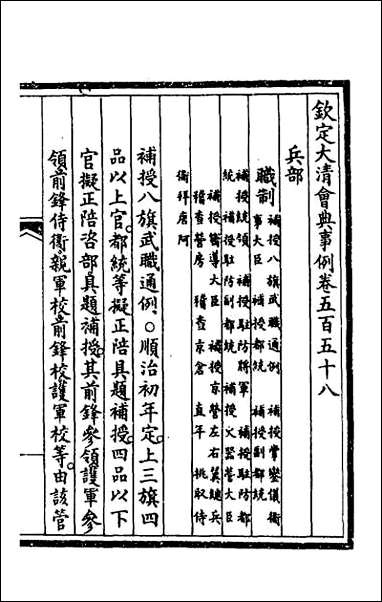 欽定大清會典事例卷五百五十八
兵部
職制
補授八旗武職通例 補授掌鑾儀衛
事大臣 補授都統 補授副都統
補授統領 補授駐防將軍 補授駐防都
統 補授駐防副都統 補授火器營大臣
補授嚮導大臣 補授京營左右翼總兵
稽查營房 稽查京倉 直年 挑取侍
衛拜唐阿
補授八旗武職通例○順治初年定。上三旗四
品以上官。都統等擬正陪具題補授。四品以下
官擬正陪咨部。具題補授。其前鋒參領護軍參
領。前鋒侍衛。親軍校。前鋒校。護軍校等。由該管